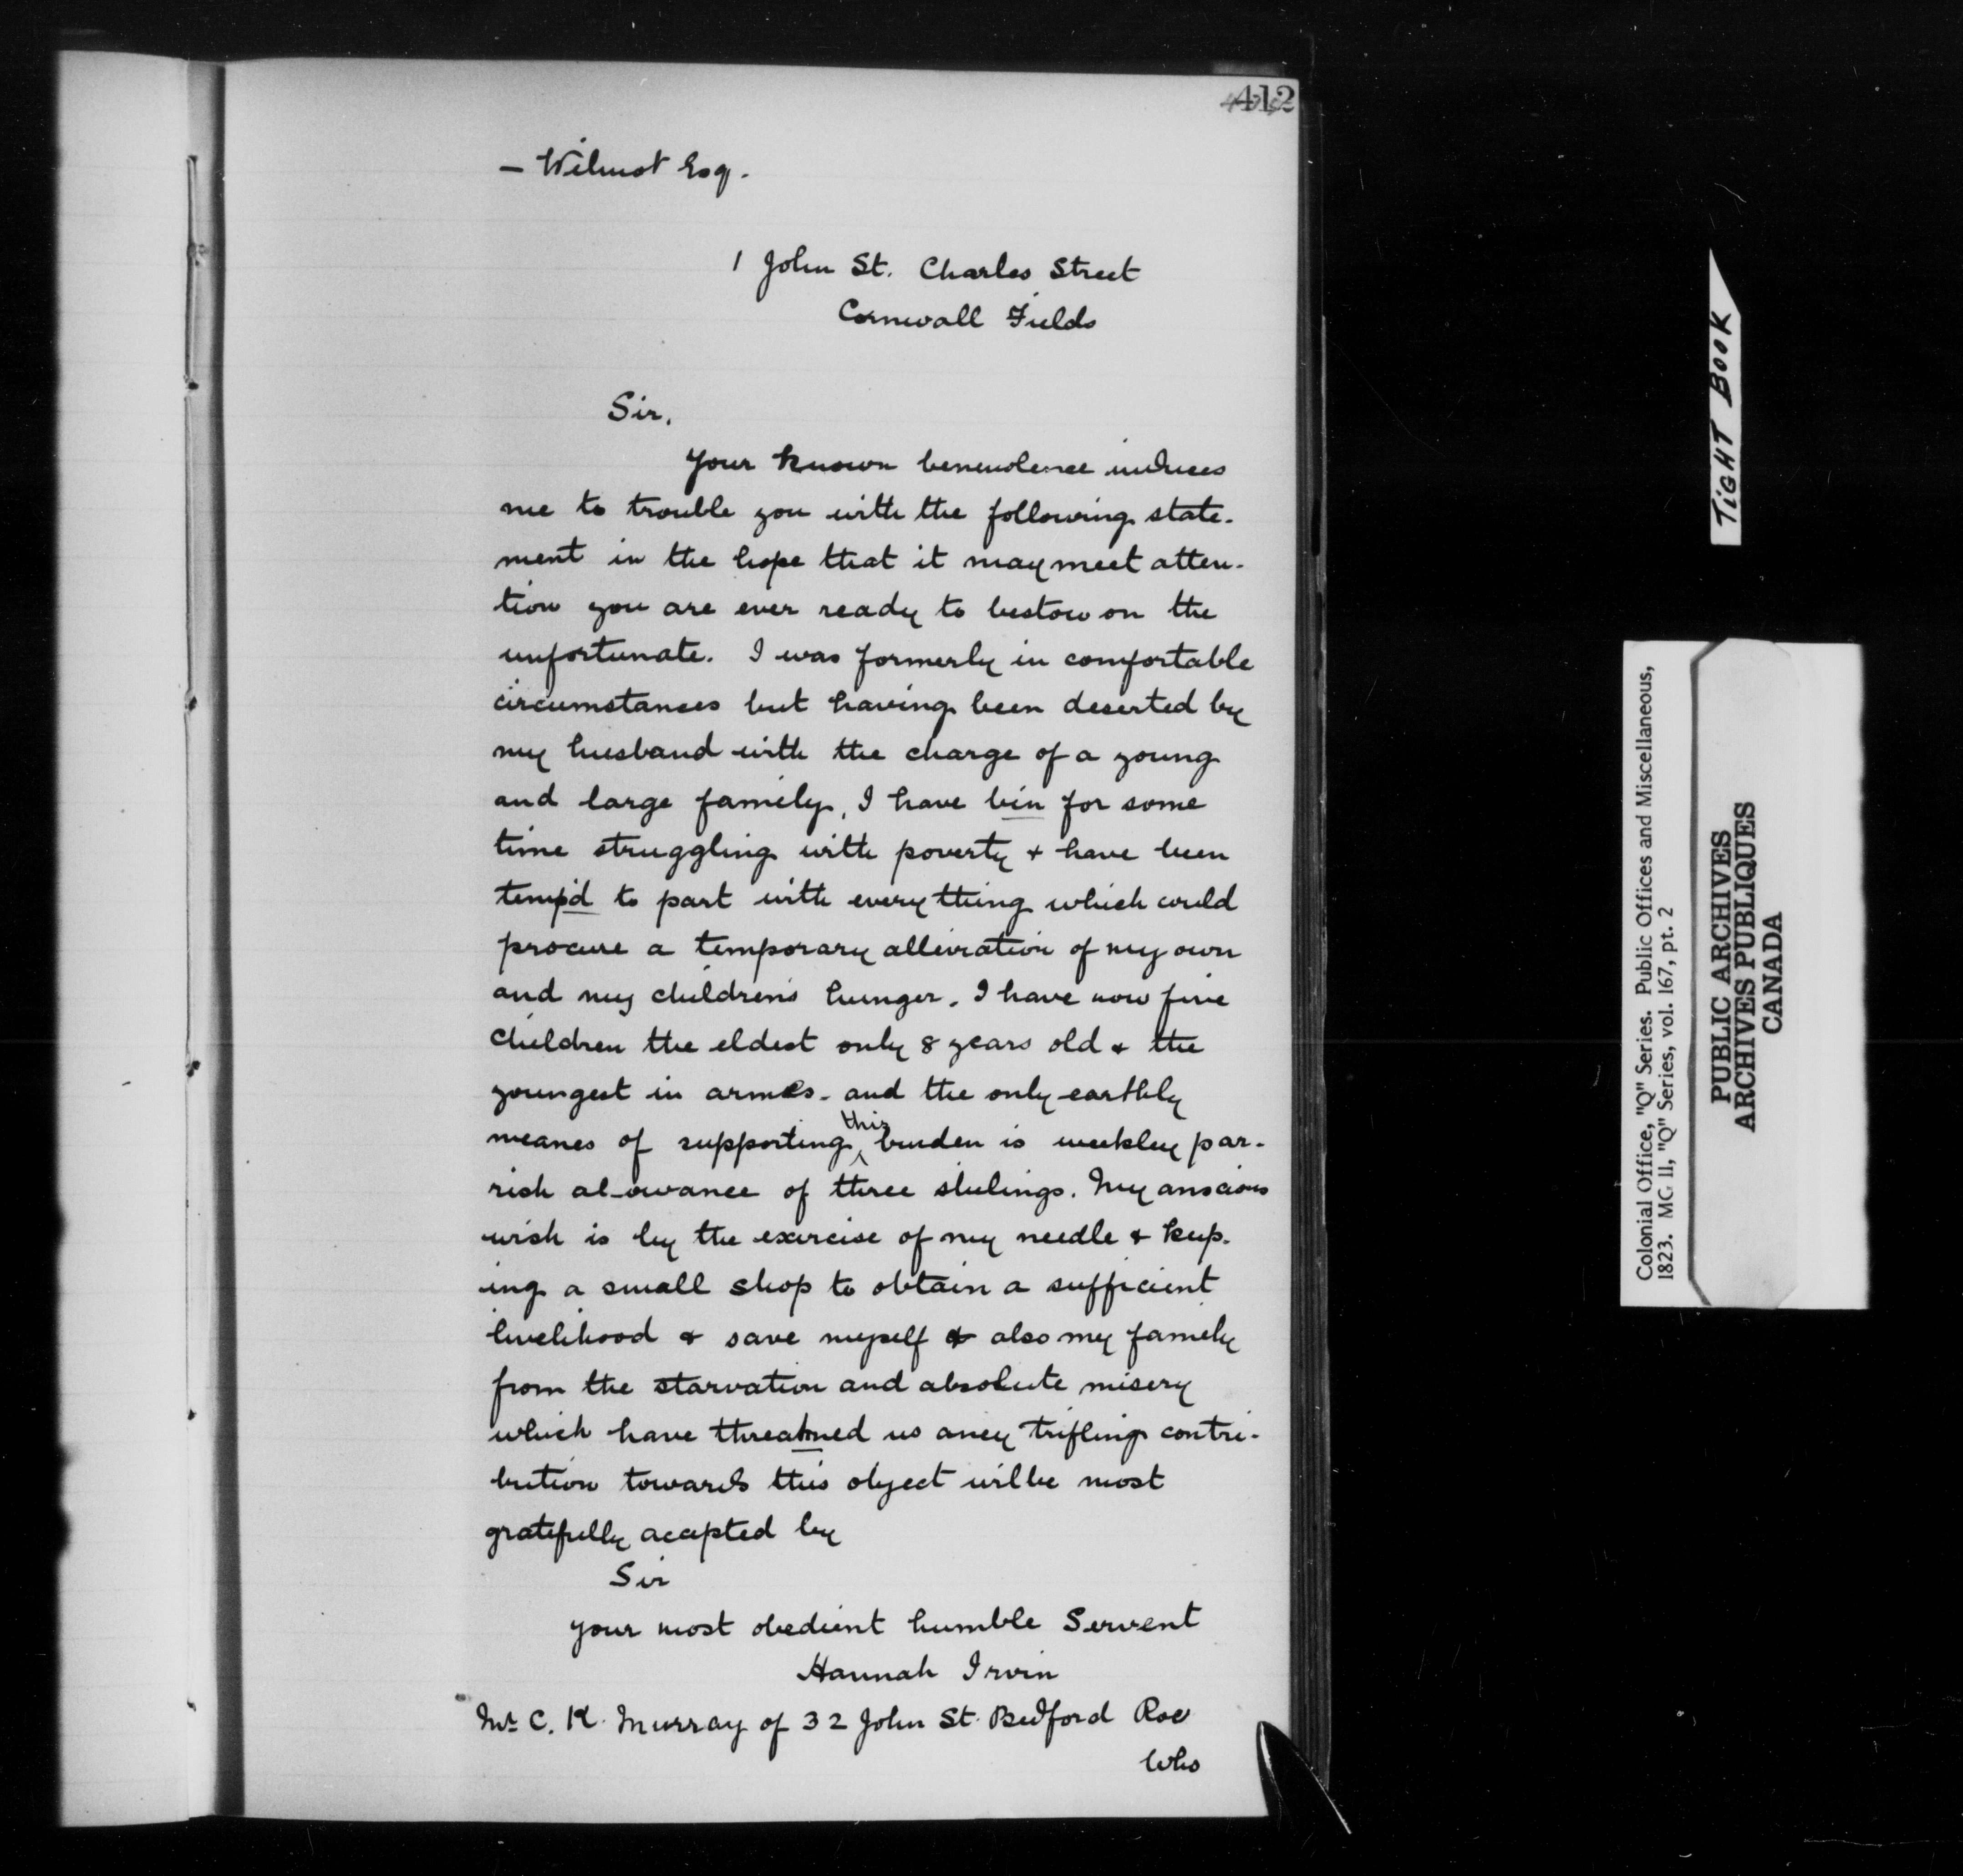 412
– Wilmot Esq.
1 John St. Charles Street
Cornwall Fields
Sir,
Your known benevolence induces
me to trouble you with the following state-
ment in the hope that it may meet atten-
tion you are ever ready to bestow on the
unfortunate. I was formerly in comfortable
circumstances but having been deserted by
my husband with the charge of a young
and large family, I have bin for some
time struggling with poverty & have been
temp'd to part with every thing which could
procure a temporary alleviation of my own
and my children's hunger. I have now five
children the eldest only 8 years old & the
youngest in armes. and the only earthly
meanes of supporting this burden is weekley par-
rish al-owance of three shilings. My anscious
wish is by the exercise of my needle & keep-
ing a small shop to obtain a sufficient
livelihood & save myself & also my family
from the starvation and absolute misery
which have threatned us aney trifling contri-
bution towards this object will be most
gratefully acepted by
Sir
your most obedient humble Servent
Hannah Irvin
Mr C. K. Murray of 32 John St. Bedford Roe
Who
TIGHT BOOK
Colonial Office, "Q" Series. Public Offices and Miscellaneous,
1823. MG 11, "Q" Series, vol. 167, pt. 2
PUBLIC ARCHIVES
ARCHIVES PUBLIQUES
CANADA